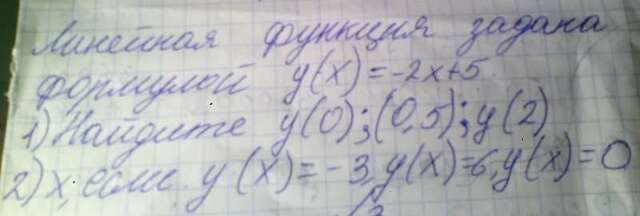 Линейная функция задана
формулой y(x)=-2x+5.
1) Найдите y(0);(0,5);y(2)
2) x, если y(x)=-3,y(x)=6,y(x)=0